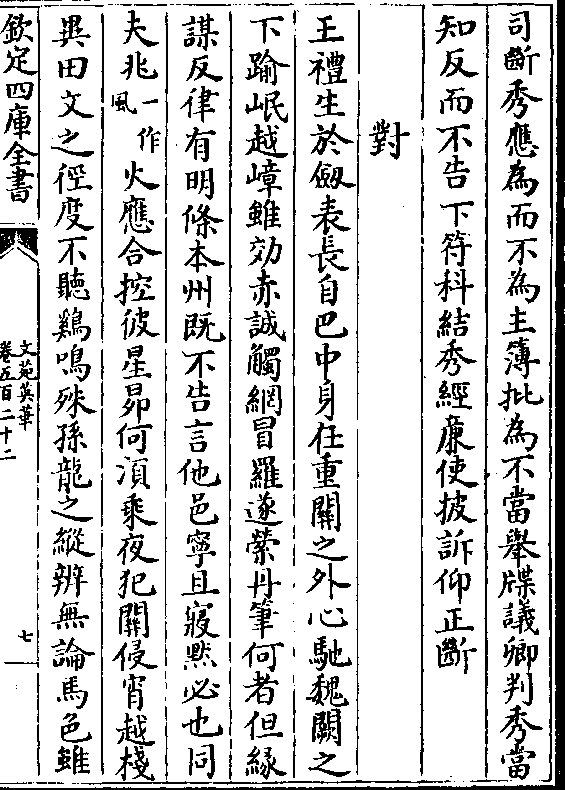 司斷秀應為而不為主簿批為不當舉牒議卿判秀當
知反而不告下符科結秀經廉使披訴仰正斷
對
王禮生於劔表長自巴中身在重關之外心馳魏闕之
下踰岷越嶂雖効赤誠觸網冒羅遂縈丹筆何者但緣
謀反律有明條本州既不告言他邑寧且寢黙必也同
夫兆一作風火應合控彼星昴何須乘夜犯關侵宵越棧
異田文之徑度不聽鷄鳴殊孫龍之縱辨無論馬色雖
欽定四庫全書
文苑英華
卷五百二十二
七